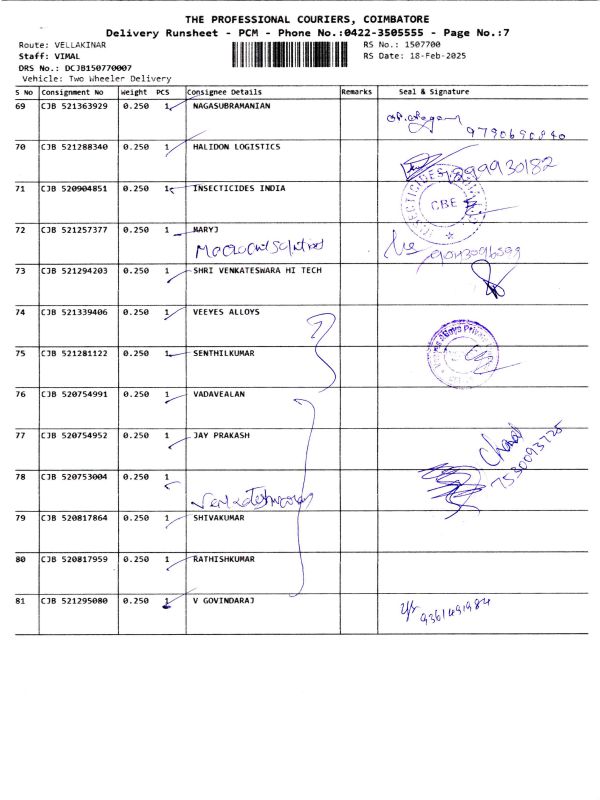 THE PROFESSIONAL COURIERS, COIMBATORE
Delivery Runsheet - PCM - Phone No.:0422-3505555 - Page No.:7
Route: VELLAKINAR
RS No.: 1507700
Staff: VIMAL
RS Date: 18-Feb-2025
DRS No.: DCJB150770007
Vehicle: Two Wheeler Delivery
S No Consignment No Weight PCS Consignee Details Remarks Seal & Signature
69 CJB 521363929 0.250 1 NAGASUBRAMANIAN
9790690840
70 CJB 521288340 0.250 1 HALIDON LOGISTICS
71 CJB 520904851 0.250 1 INSECTICIDES INDIA
CBE
72 CJB 521257377 0.250 1 MARYJ
73 CJB 521294203 0.250 1 SHRI VENKATESWARA HI TECH
74 CJB 521339406 0.250 1 VEEYES ALLOYS
75 CJB 521281122 0.250 1 SENTHILKUMAR
76 CJB 520754991 0.250 1 VADAVEALAN
77 CJB 520754952 0.250 1 JAY PRAKASH
7530093725
78 CJB 520753004 0.250 1
79 CJB 520817864 0.250 1 SHIVAKUMAR
80 CJB 520817959 0.250 1 RATHISHKUMAR
81 CJB 521295080 0.250 1 V GOVINDARAJ
9361491984